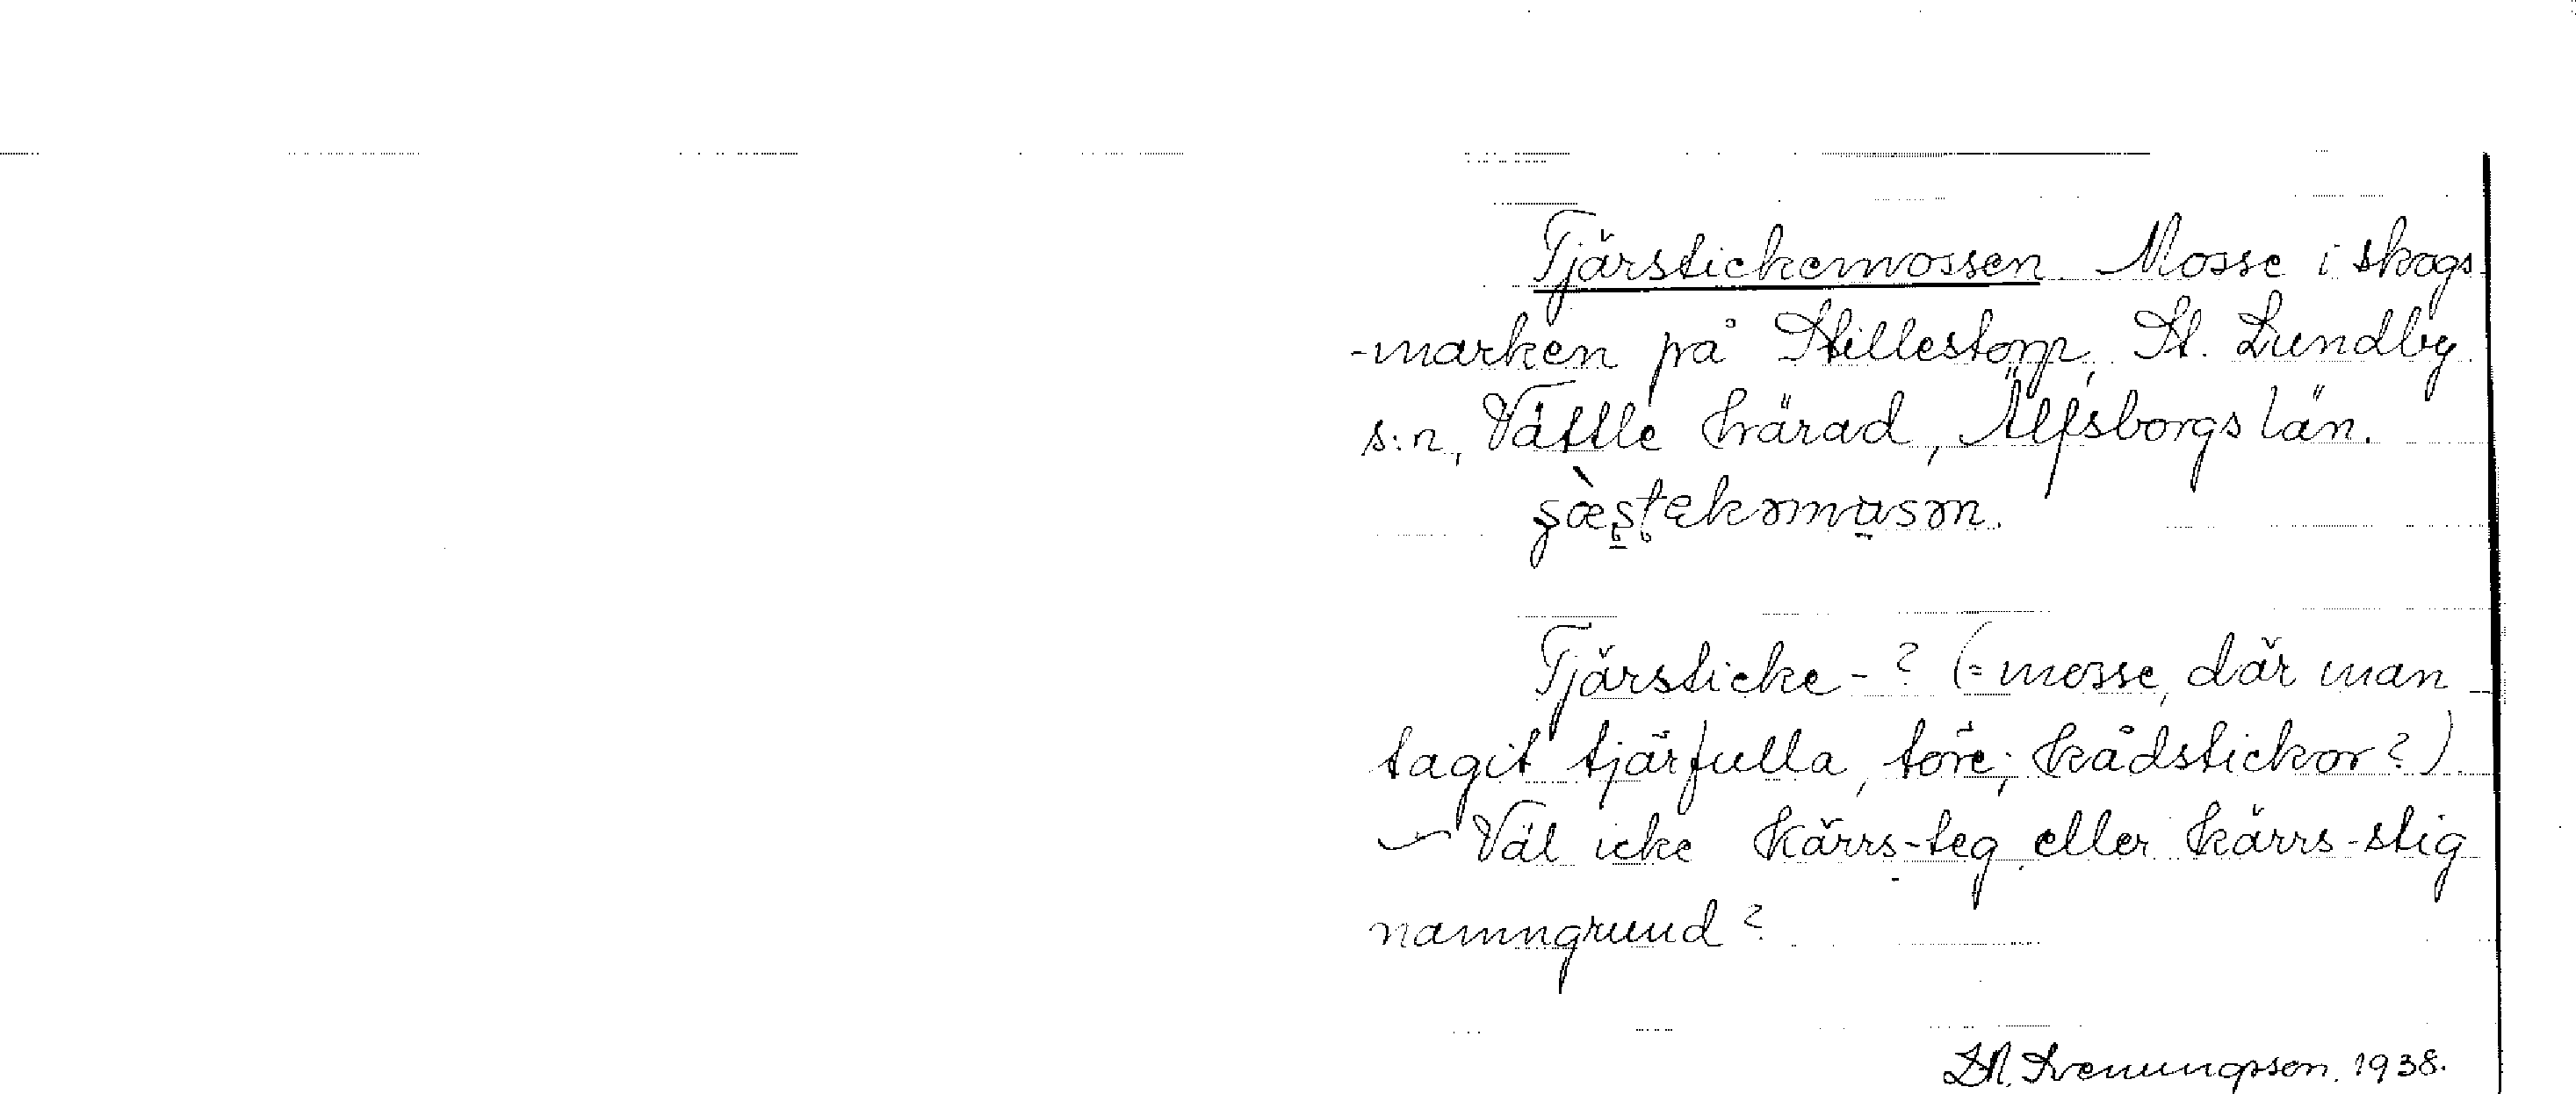 Tjärstickemossen. Mosse i skogs-
-marken på Stillestorp, St. Lundby
s:n, Vättle härad, Älfsborgs län.
Tjärsticke-? (= mosse, där man
tagit tjärfulla, töre-, kådstickor?)
– Väl icke kärrs-teg eller kärrs-stig
namngrund?
Svenungsson. 1938.